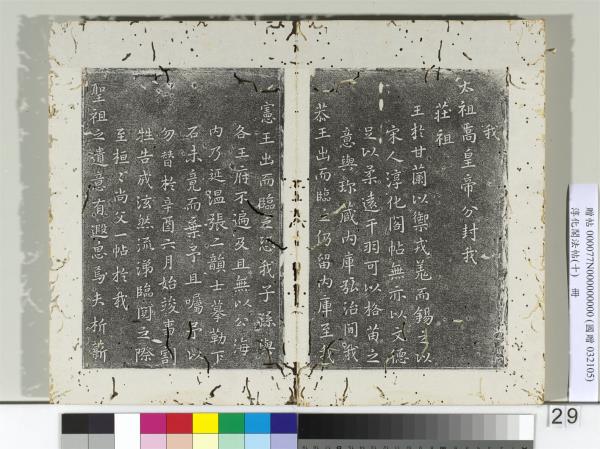 我
太祖高皇帝分封我
莊祖
王於甘蘭以禦戎羗而錫之以
宋人淳化閣帖無亦以文德
足以柔遠干羽可以格苗之
意與珎藏內庫弘治間我
恭王出而臨之仍留內庫至我
憲王出而臨之迨我子孫與
各王府不遍及且無以公海
內乃延溫張二韻士摹勒下
石未竟而棄予且囑予以
勿替於辛酉六月始竣事割
牲告成泫然流涕臨閱之際
至桓尚父一帖於我
聖祖之遺意有遐思焉夫析薪
贈帖 000077N000000000 (國贈 032105)
淳化閣法帖(十) 冊
29